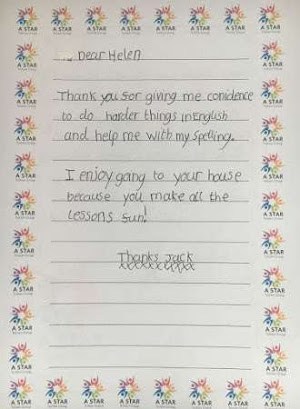 A STAR A STAR A STAR A STAR A STAR A STAR A STAR
Dear Helen
Thank you for giving me conidence
to do harder things in English
and help me with my spelling.
I enjoy gang to your house
because you make all the
lessons fun!
Thanks Jack
xxxxxxxxxx
A STAR A STAR A STAR A STAR A STAR A STAR A STAR A STAR